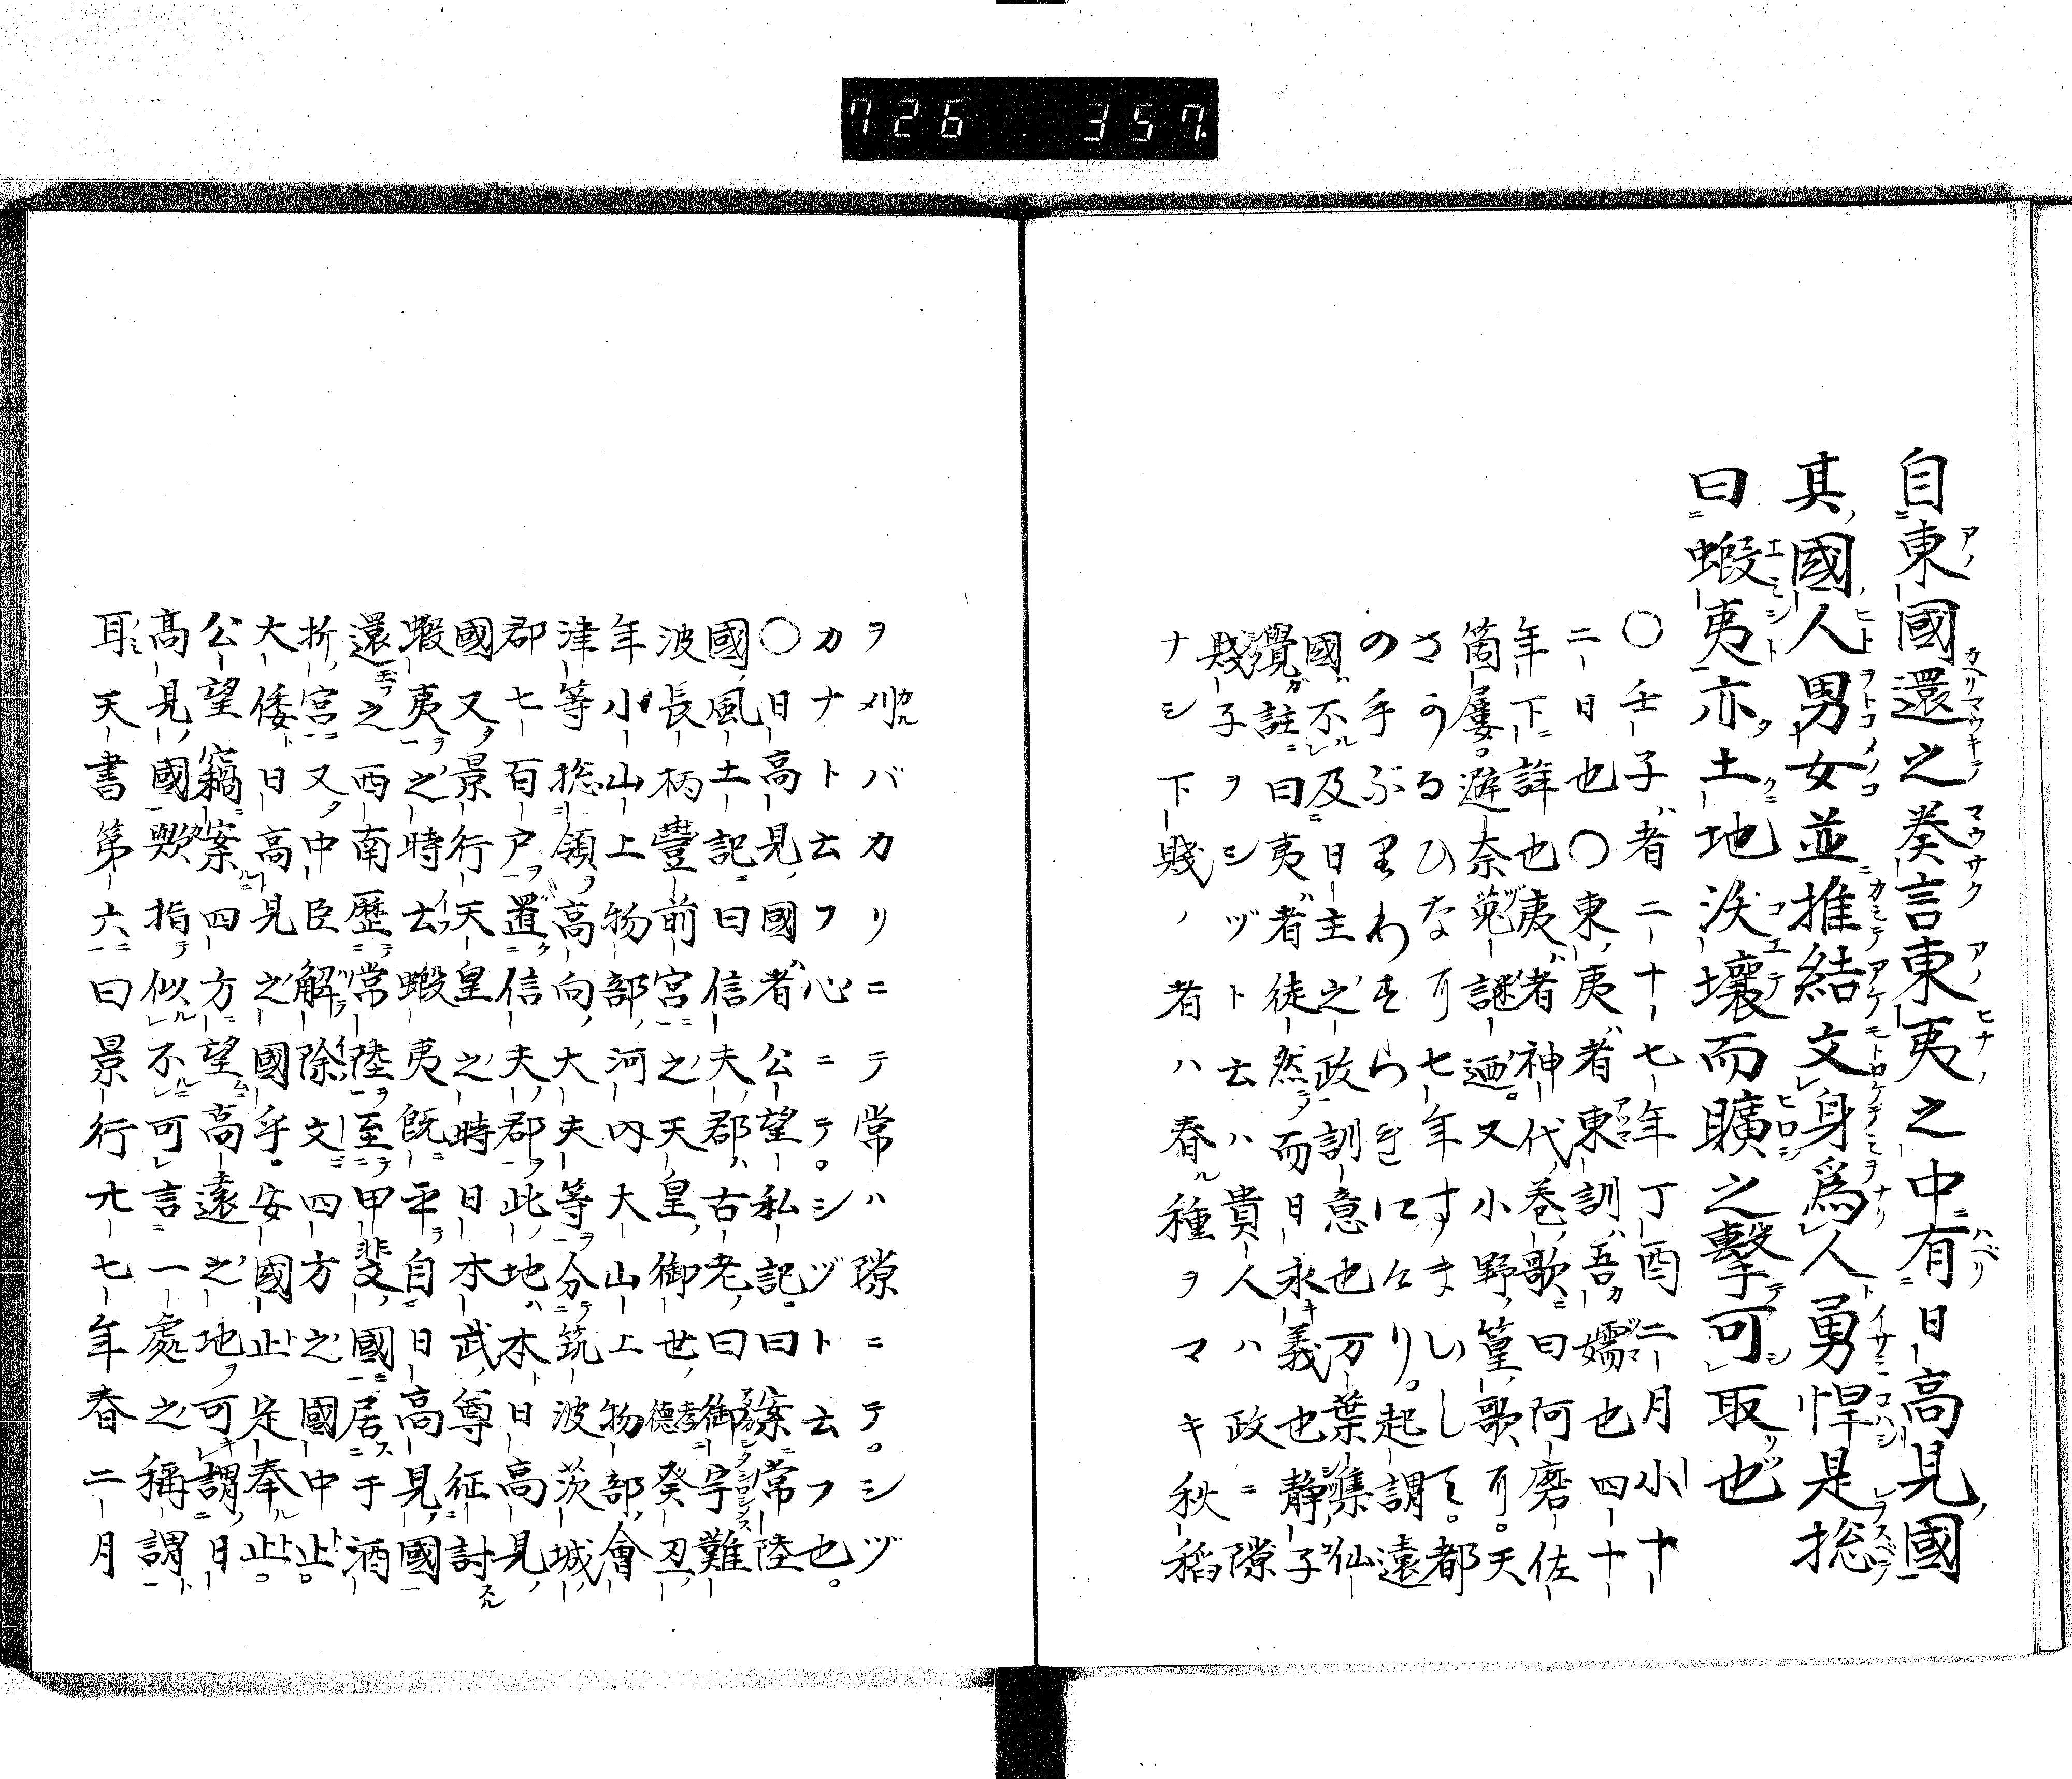 726 357.
自東國還之奏言東夷之中有日高見國
其國人男女並推結文身爲人勇悍是捴
曰蝦夷亦土地渂壤而曠之擊可取也
○壬子者二十七年丁酉二月小十
二日也○東夷者東訓吾嬬也四十
年下詳也夷者神代巻歌曰阿磨佐
箇屢避奈菟謎迺又小野篁歌可天
さかるひな可七年すまひして都
の手ぶりわすらえにけり起謂遠
國不及日主之政訓意也万葉集仙
覺註曰夷者徒然而日永義也静子
賤子ヲシヅト云ハ貴人ハ政ニ隙
ナシ下賤ノ者ハ春種ヲマキ秋稻
ヲ刈バカリニテ常ハ隙ニテシヅ
カナト云フ心ニテシヅト云フ也
○日高見國者公望私記曰案常陸
國風土記曰信夫郡古老曰御宇難
波長柄豐前宮之天皇御世孝德癸丑
年小山上物部河内大山上物部會
津等捴領高向大夫等分筑波茨城
郡七百户置信夫郡此地本日高見
國又景行天皇之時日本武尊征討
蝦夷之時云蝦夷旣平自日高見國
還之西南歴常陸至甲斐國居于酒
折宮又中臣解除文四方之國中止
大倭日高見之國乎安國止定奉止
公望竊案四方望高遠之地可謂日
髙見國歟指似不可言一處之稱謂
耳天書第六曰景行廿七年春二月